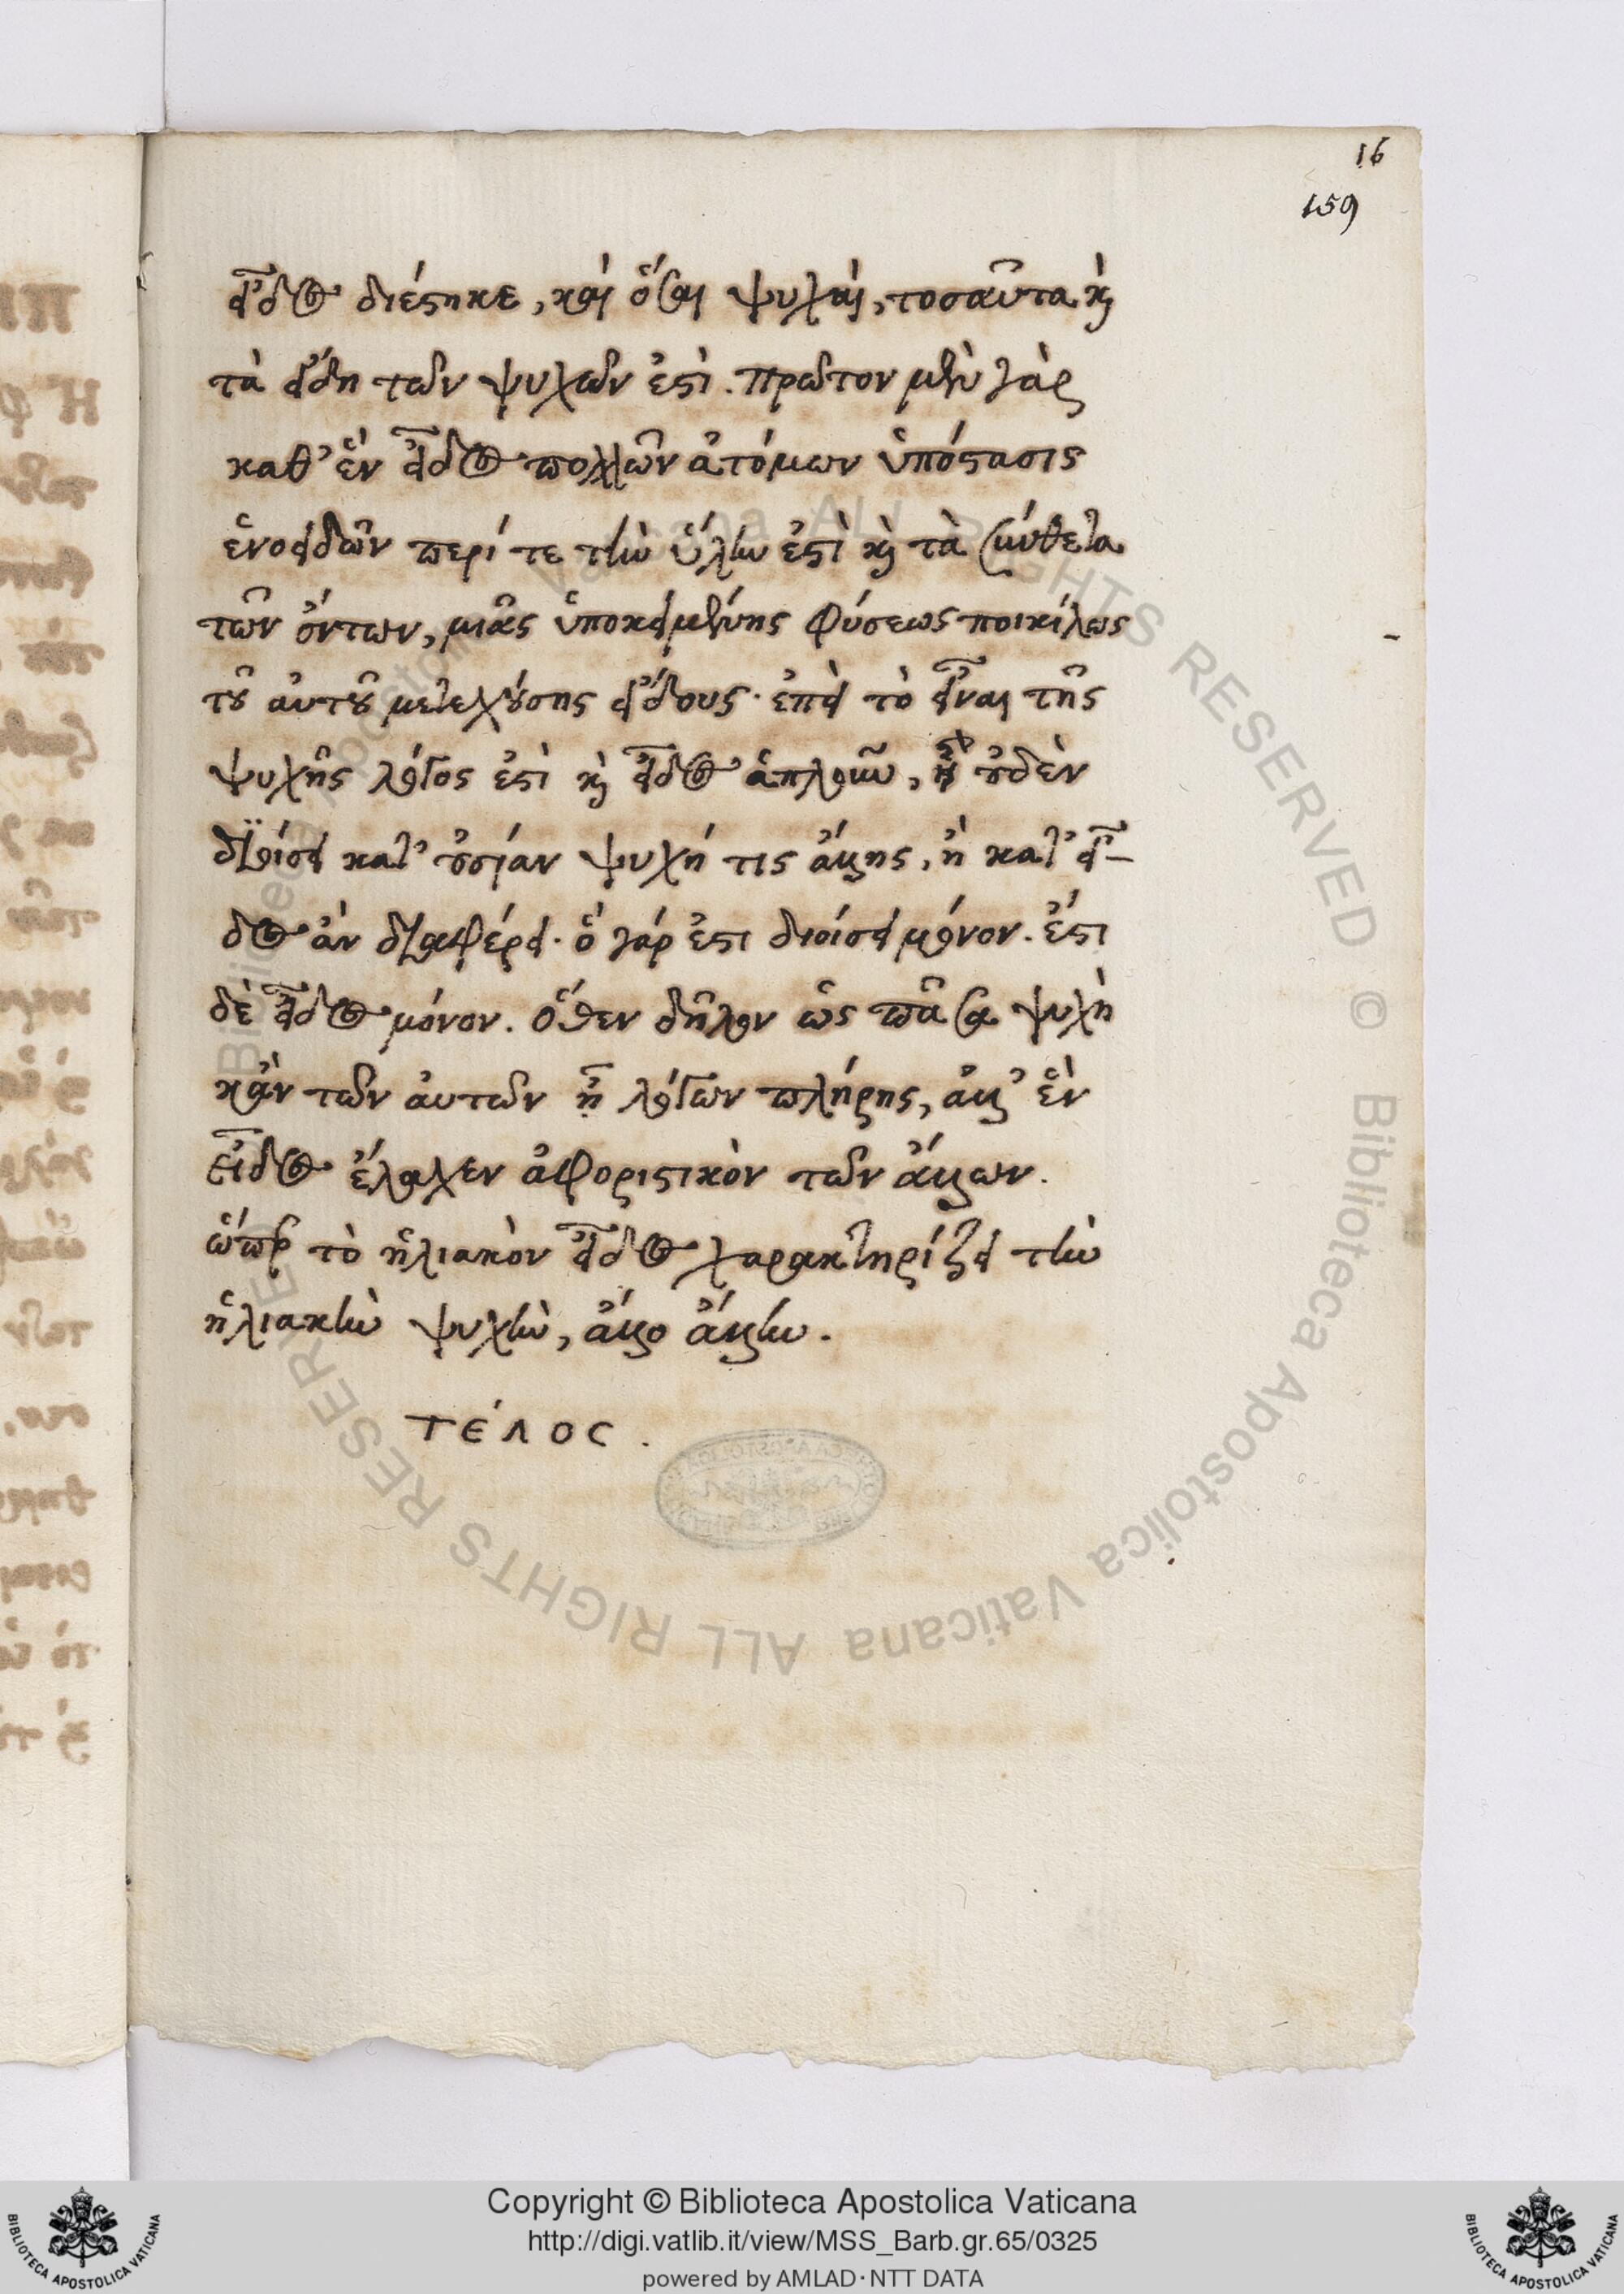 16
159
εἶδος διέστηκε, καὶ ὅσαι ψυχαὶ, τοσαῦτα καὶ
τὰ εἴδη τῶν ψυχῶν ἐστὶ. πρῶτον μὲν γὰρ
καθ' ἓν εἶδος πολλῶν ἀτόμων ὑπόστασις
ἑνοειδῶν περί τε τὴν ὕλην ἐστὶ καὶ τὰ σύνθετα
τῶν ὄντων, μιᾶς ὑποκειμένης φύσεως ποικίλως
τοῦ αὐτοῦ μετεχούσης εἴδους· ἐπεὶ τὸ εἶναι τῆς
ψυχῆς λόγος ἐστὶ καὶ εἶδος ἁπλοῦν, ἢ οὐδὲν
διοίσει κατ' οὐσίαν ψυχή τις ἄλλης, ἢ κατ' εἶ-
δος ἂν διαφέρει· ὅ γάρ ἐστι διοίσει μόνον. ἔστι
δὲ εἶδος μόνον. ὅθεν δῆλον ὡς πᾶσα ψυχὴ
κἂν τῶν αὐτῶν ᾖ λόγων πλήρης, ἀλλ' ἓν
εἶδος ἔλαχεν ἀφοριστικὸν τῶν ἄλλων.
ὥσπερ τὸ ἡλιακὸν εἶδος χαρακτηρίζει τὴν
ἡλιακὴν ψυχὴν, ἄλλο ἄλλην.
τέλος.
Copyright © Biblioteca Apostolica Vaticana
http://digi.vatlib.it/view/MSS_Barb.gr.65/0325
powered by AMLAD·NTT DATA
BIBLIOTECA APOSTOLICA VATICANA
BIBLIOTECA APOSTOLICA VATICANA
Biblioteca Apostolica Vaticana ALL RIGHTS RESERVED © Biblioteca Apostolica Vaticana ALL RIGHTS RESERVED